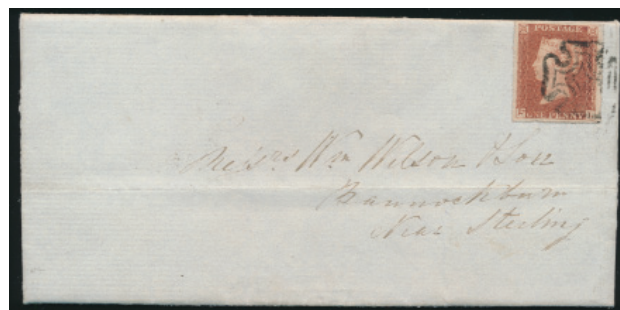 POSTAGE
ONE PENNY
Messrs Wm Wilson & Son
Bannockburn
Near Sterling